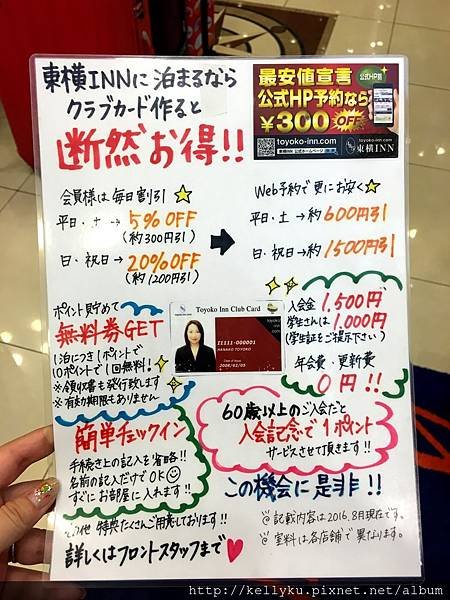 東横INNに泊まるなら
クラブカード作ると
断然お得!!
最安値宣言
公式HP割
公式HP予約なら
¥300 OFF
toyoko-inn.com
東横INN 公式ホームページ
toyoko-inn.com
東横INN
会員様は毎日割引
平日・土→5%OFF
(約300円引)
日・祝日→20%OFF
(約1200円引)
Web予約で更にお安く
平日・土→約600円引
日・祝日→約1500円引
ポイント貯めて
無料券GET
1泊につき1ポイントで
10ポイントで1回無料!
※領収書も発行致します
※有効期限もありません
Toyoko Inn Club Card
toyoko-
inn.
com
I1111-000001
HANAKO TOYOKO
2006/02/05
入会金 1,500円
学生さんは 1,000円
(学生証をご提示下さい)
年会費・更新費
0円!!
簡単チェックイン
手続き上の記入を省略!!
名前の記入だけでOK
すぐにお部屋に入れます!!
60歳以上のご入会だと
入会記念で1ポイント
サービスさせて頂きます!!
この機会に是非!!
その他 特典たくさんご用意しております!!
詳しくはフロントスタッフまで
@記載内容は2016.8月現在です。
@室料は各店舗で異なります。
http://kellyku.pixnet.net/album